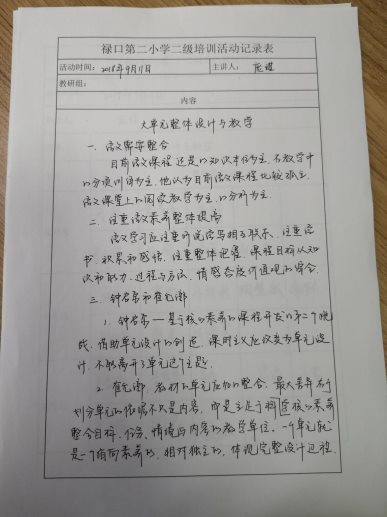 禄口第二小学二级培训活动记录表
活动时间: 2018年9月11日 主讲人:
教研组:
内容
大单元整体设计与教学
一、语文需要整合
目前语文课程还是以知识本位为主,在教学中
以分项训练为主,他认为目前语文课程比较孤立,
语文课堂上以阅读教学为主,以分析为主。
二、注重语文素养整体提高
语文学习应注重听说读写相互联系,注重读
书、积累和感悟,注重整体把握,课程目标从知
识和能力、过程与方法、情感态度价值观的综合。
三、钟启泉和崔允漷
1、钟启泉——基于核心素养的课程开发的第二个挑
战,借助单元设计的创造,课时主义应改变为单元设
计,不能离开了单元这个主题。
2、崔允漷,教材的单元应为的整合,最大差异在于
划分单元的依据不只是内容,即是立足于学科核心素养
整合目标、任务、情境与内容的教学单位,一个单元就
是一个指向素养的、相对独立的、体现完整设计过程